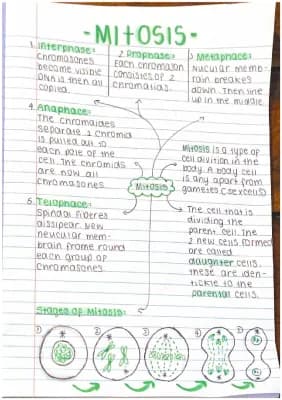 -MITOSIS-
1. Interphase:
chromasones
become visible
DNA is then all
copied.
2. Prophase:
Each chromason
consists of 2
chromatias.
3. Metaphace:
Nucular mem-
brain breakes
down. Then line
up in the middle.
4. Anaphace:
The chromaides
separate 1 chromid
is pulled out to
each pole of the
cell. The chromids
are now all
chromasones.
Mitosis is a type of
cell division in the
body. A body cell
is any apart from
gametes (sex cells)
Mitosis
5. Telophace:
Spindal fiberes
dissipear. New
neucular mem-
brain frome round
each group of
chromasones.
The cell that is
dividing the
parent cell. The
2 new cells formed
are called
daughter cells.
these are iden-
tickle to the
parental cells.
Stages of Mitosis:
1 2 3 4 5